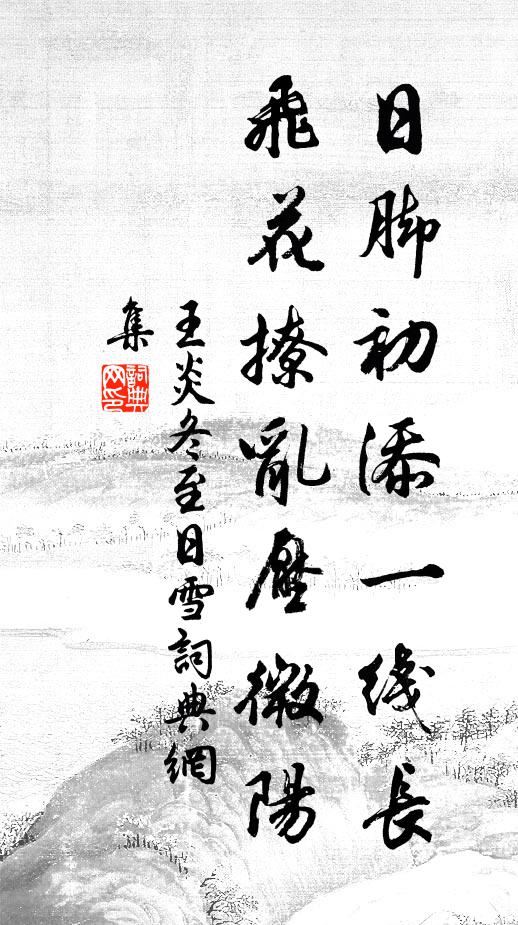 日脚初添一线長
飛花撩亂壓微陽
王炎冬至日雪詞典網
集
詞典網印